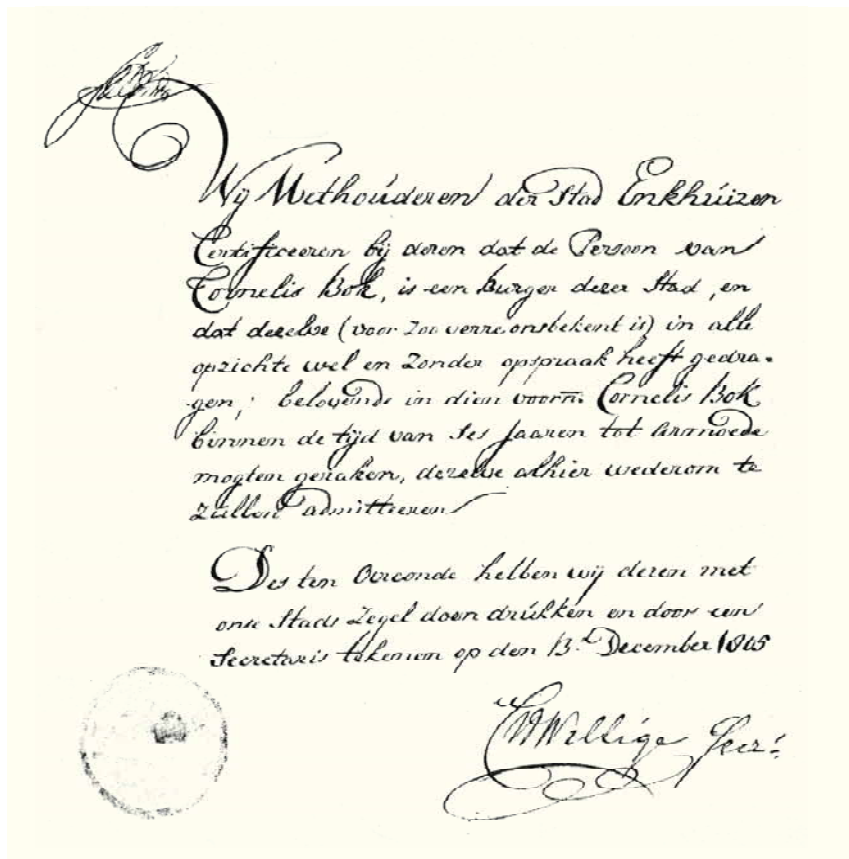 Wij Wethouderen der Stad Enkhuizen
Certificeeren bij deren dat de Persoon van
Cornelis Bok, is een burger dezer Stad, en
dat dezelve (voor zoo verre ons bekent is) in alle
opzichte wel en zonder opspraak heeft gedra=
gen; belovende in dien voorn: Cornelis Bok
binnen de tijd van Ses Jaaren tot armoede
mogten geraken, dezelve alhier wederom te
zullen admitteeren
Des ten Oirconde hebben wij deren met
onse Stads Zegel doen drukken en door een
Secretaris tekenen op den 13.e December 1805
Willige Secr: